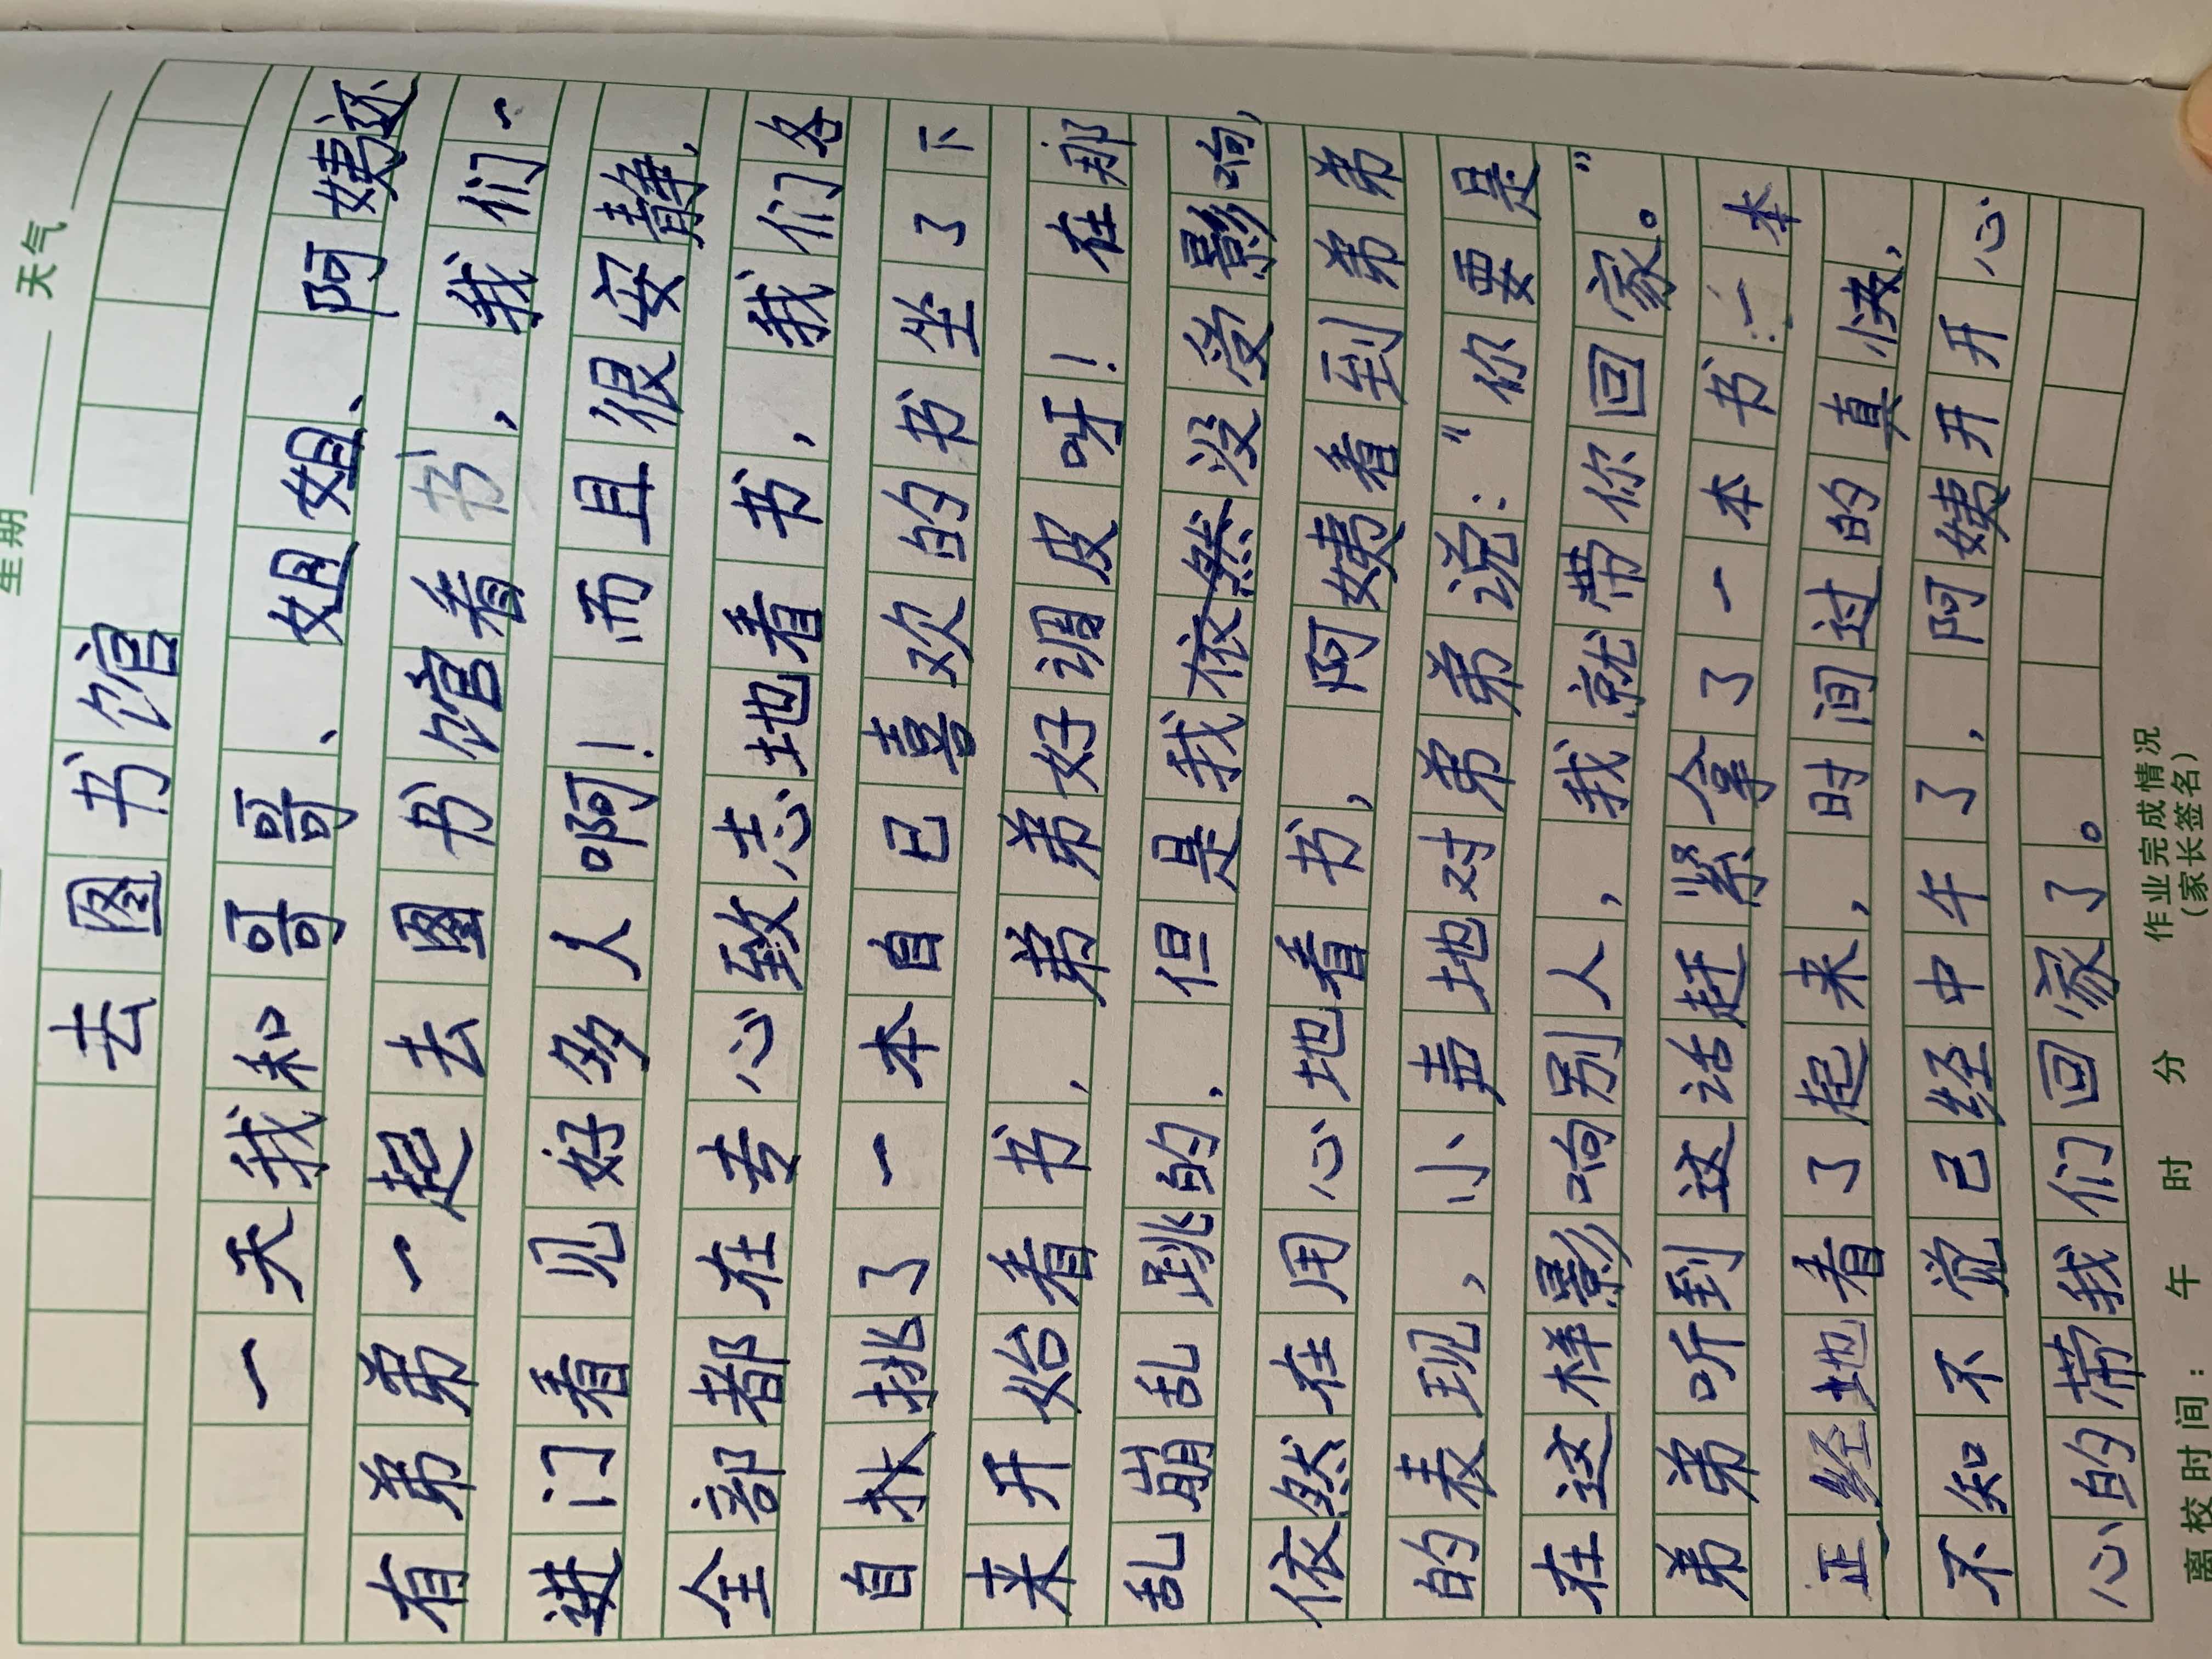 星期 天气
去图书馆
一天我和哥哥、姐姐、阿姨还
有弟弟一起去图书馆看书，我们一
进门看见好多人啊！而且很安静，
全部都在专心致志地看书，我们各
自扒挑了一本自已喜欢的书坐了下
来开始看书，弟弟好调皮呀！在那
乱崩乱跳的，但是我依然没受影响，
依然在用心地看书，阿姨看到弟弟
的表现，小声地对弟弟说：“你要是
在这样影响别人，我就带你回家。”
弟弟听到这话赶紧拿了一本书：一本
正经地看了起来，时间过的真快，
不知不觉已经中午了，阿姨开开心
心的带我们回家了。
离校时间： 午 时 分 作业完成情况
（家长签名）